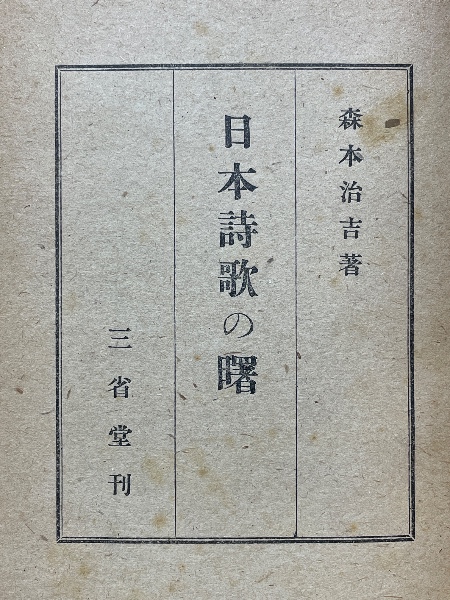 森本治吉著
日本詩歌の曙
三省堂刊